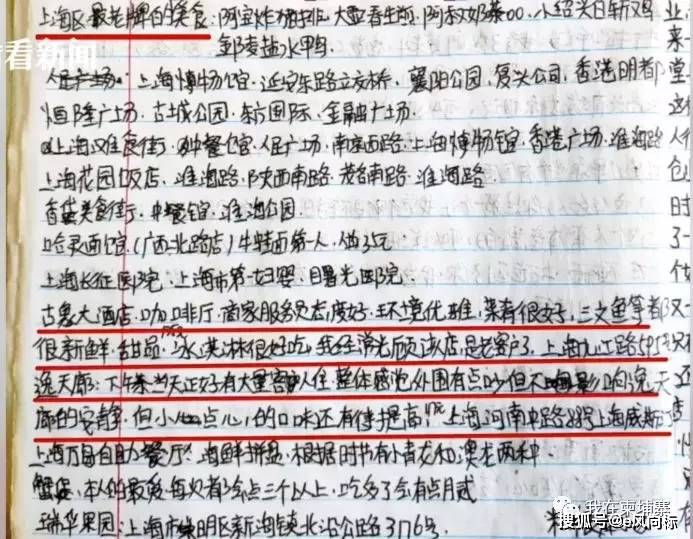 看看新闻
上海区最老牌的美食:阿宝炸猪排、大壶春生煎、阿叔奶茶00、小绍兴白斩鸡
邹家盐水鸭
人民广场、上海博物馆、延安东路立交桥、襄阳公园、复兴公司、香港明都
恒隆广场、古城公园、东方国际、金融广场
上海汉唯食街、种餐馆、人民广场、南京西路、上海博物馆、香港广场、淮海路
上海花园饭店、淮海路、陕西南路、茂名南路、淮海路
美食街、中餐馆、淮海公园
哈灵面馆、(广西北路店)牛蛙面第一人、做25元
上海长征医院、上海市第一妇婴、曙光医院
古象大酒店、咖啡厅、商家服务员态度好、环境优雅、菜肴很好、三文鱼等都
很新鲜、甜品、冰淇淋很好吃、我经常光顾该店、是老客户了、上海九江路595
逸天廊:下午茶当天正好有大量客人入住、整体感觉外围有点吵但不影响逸天
廊的安静、但小点心的口味还有待提高、上海河南中路 上海威斯
上海万自助餐厅、海鲜拼盘、根据时节有小青龙和澳龙两种
蟹、本人的最爱、每次有会点三个以上、吃多了会有点月咸
瑞华果园:上海市崇明区新海镇北沿公路3176号
我在柬埔寨
搜狐号@风向标